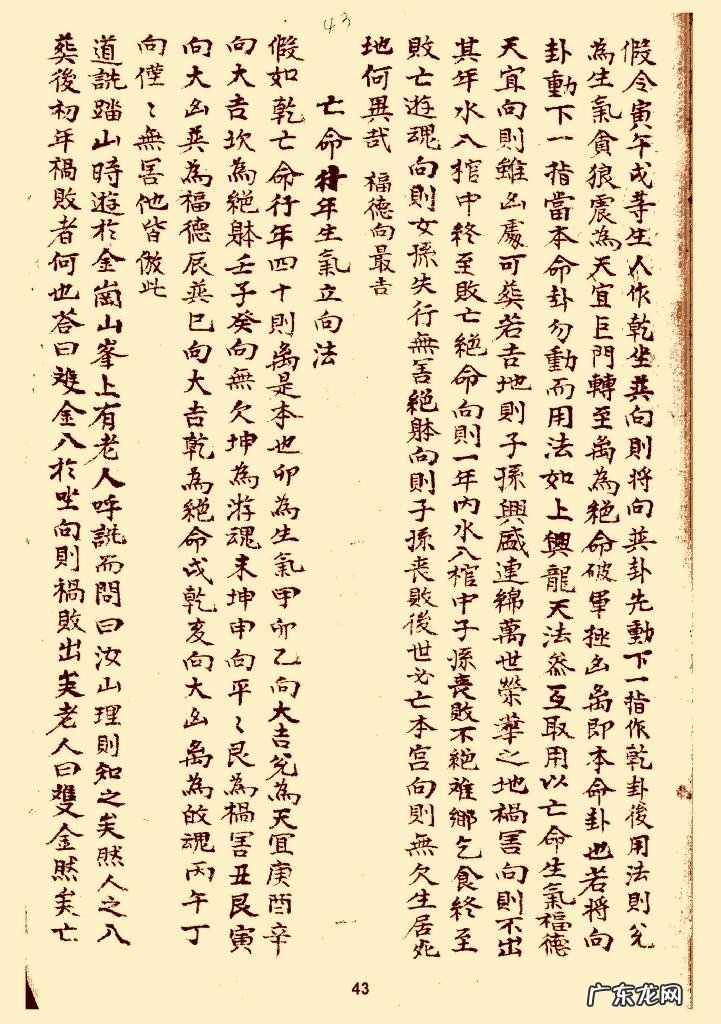 43
假令寅午戌等生人作乾坐巽向則将向巽卦先動下一指作乾卦後用法則兌
為生氣貪狼震為天宜巨門轉至离為絕命破軍極凶离即本命卦也若将向
卦動下一指當本命卦勿動而用法如上與龍天法叅互取用以亡命生氣福德
天宜向則雖凶處可葬若吉地則子孫興盛連綿萬世榮華之地禍害向則不出
其年水入棺中終至敗亡絕命向則一年內水入棺中子孫喪敗不絕难鄉乞食終至
敗亡遊魂向則女孫失行無害絕躰向則子孫喪敗後世必亡本宮向則無欠生居死
地何異哉 福德向最吉
亡命行年生氣立向法
假如乾亡命行年四十則离是本也卯為生氣甲卯乙向大吉兌為天宜庚酉辛
向大吉坎為絕躰壬子癸向無欠坤為游魂未坤申向平〻艮為禍害丑艮寅
向大凶巽為福德辰巽巳向大吉乾為絕命戌乾亥向大凶离為的魂丙午丁
向僅〻無害他皆倣此
道詵踏山時遊於金崗山峯上有老人呼詵而問曰汝山理則知之矣然人之入
葬後初年禍敗者何也答曰雙金入於坐向則禍敗出矣老人曰雙金然矣亡
43
广东龙网